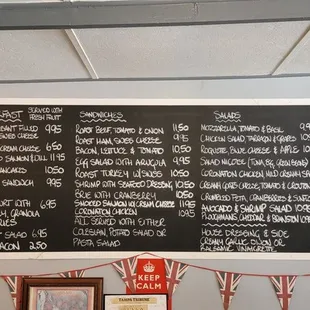 FAST SERVED WITH
FRESH FRUIT
SSANT FILLED 9.95
SWISS CHEESE
CREAM CHEESE 6.50
SALMON & DILL 11.95
PANCAKES 10.50
SANDWICH 9.95
YOGURT WITH 6.95
GRANOLA
FRUITS
SALAD 6.95
BACON 2.50
SANDWICHES
ROAST BEEF, TOMATO & ONION 11.50
ROAST HAM, SWISS CHEESE 10.95
BACON, LETTUCE & TOMATO 10.50
EGG SALAD WITH ARUGULA 9.95
ROAST TURKEY W/ SWISS 10.50
SHRIMP WITH SEAFOOD DRESSING 10.50
BRIE WITH CRANBERRY 10.50
SMOKED SALMON W/ CREAM CHEESE 12.95
CORONATION CHICKEN 10.95
ALL SERVED WITH EITHER
COLESLAW, POTATO SALAD OR
PASTA SALAD
SALADS
MOZZARELLA, TOMATO & BASIL 9.9
CHICKEN SALAD, TARRAGON & GRAPES 10.5
ROQUETTE, BLUE CHEESE & APPLE 10
SALAD NICOISE (TUNA, EGG, GREEN BEANS)
CORONATION CHICKEN, MILD CREAMY
CREAMY GOATS CHEESE, TOMATO & CROUTON
CRUMBLED FETA, CRANBERRIES &
AVOCADO & SHRIMP SALAD 10.95
PLOUGHMANS CHEDDAR & BRANSTON 10.9
HOUSE DRESSING & SIDE
CREAMY GARLIC, ONION OR
BALSAMIC VINAIGRETTE
KEEP
CALM